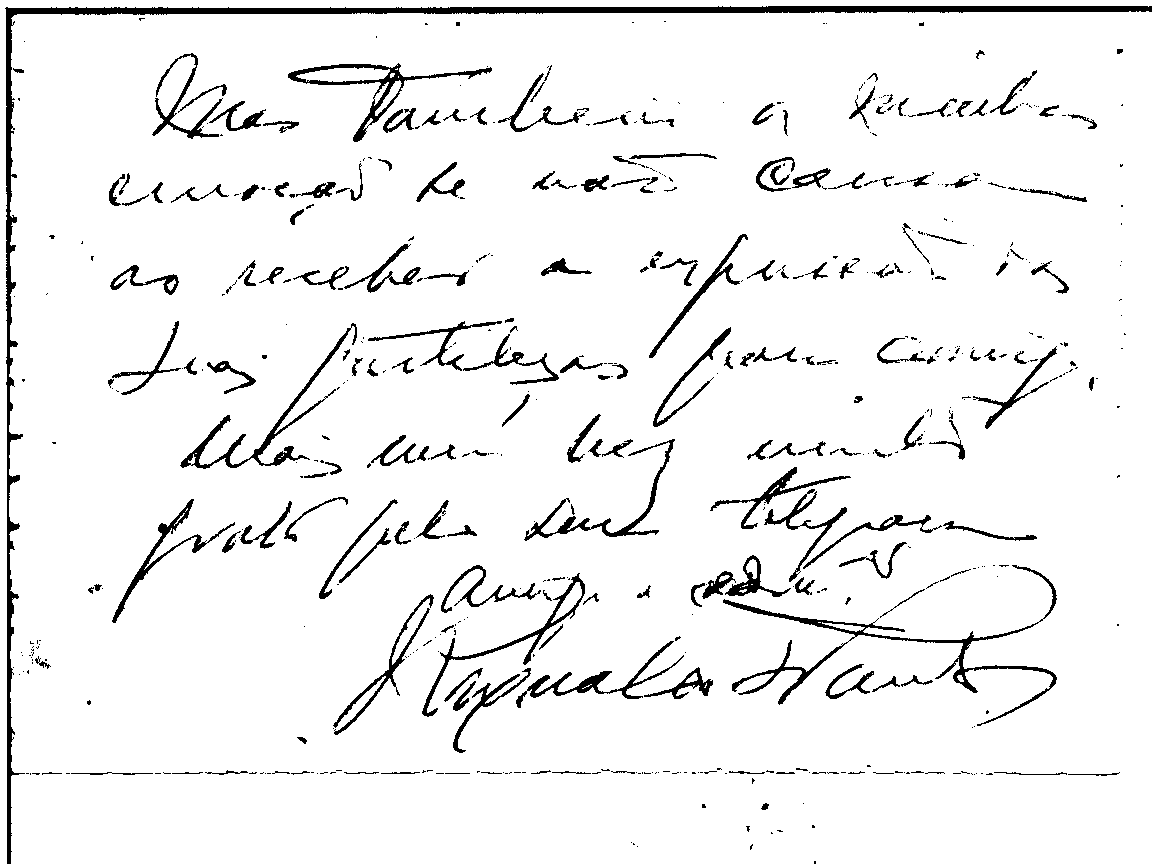 Mas também a minha
emoção se não cansa
ao receber a expressão das
suas gentilezas para comigo.
Mais uma vez muito
grato pelo seu telegrama
amigo e adm.or
Reynaldo dos Santos